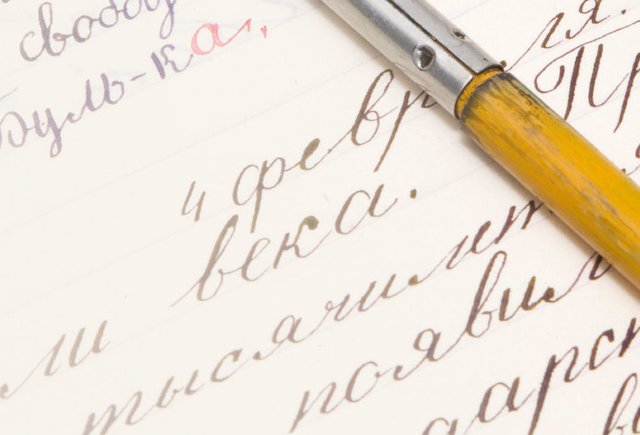 свобод
Буль-ка,
4 февр ля.
ли века. Пр
тысячилет
появил